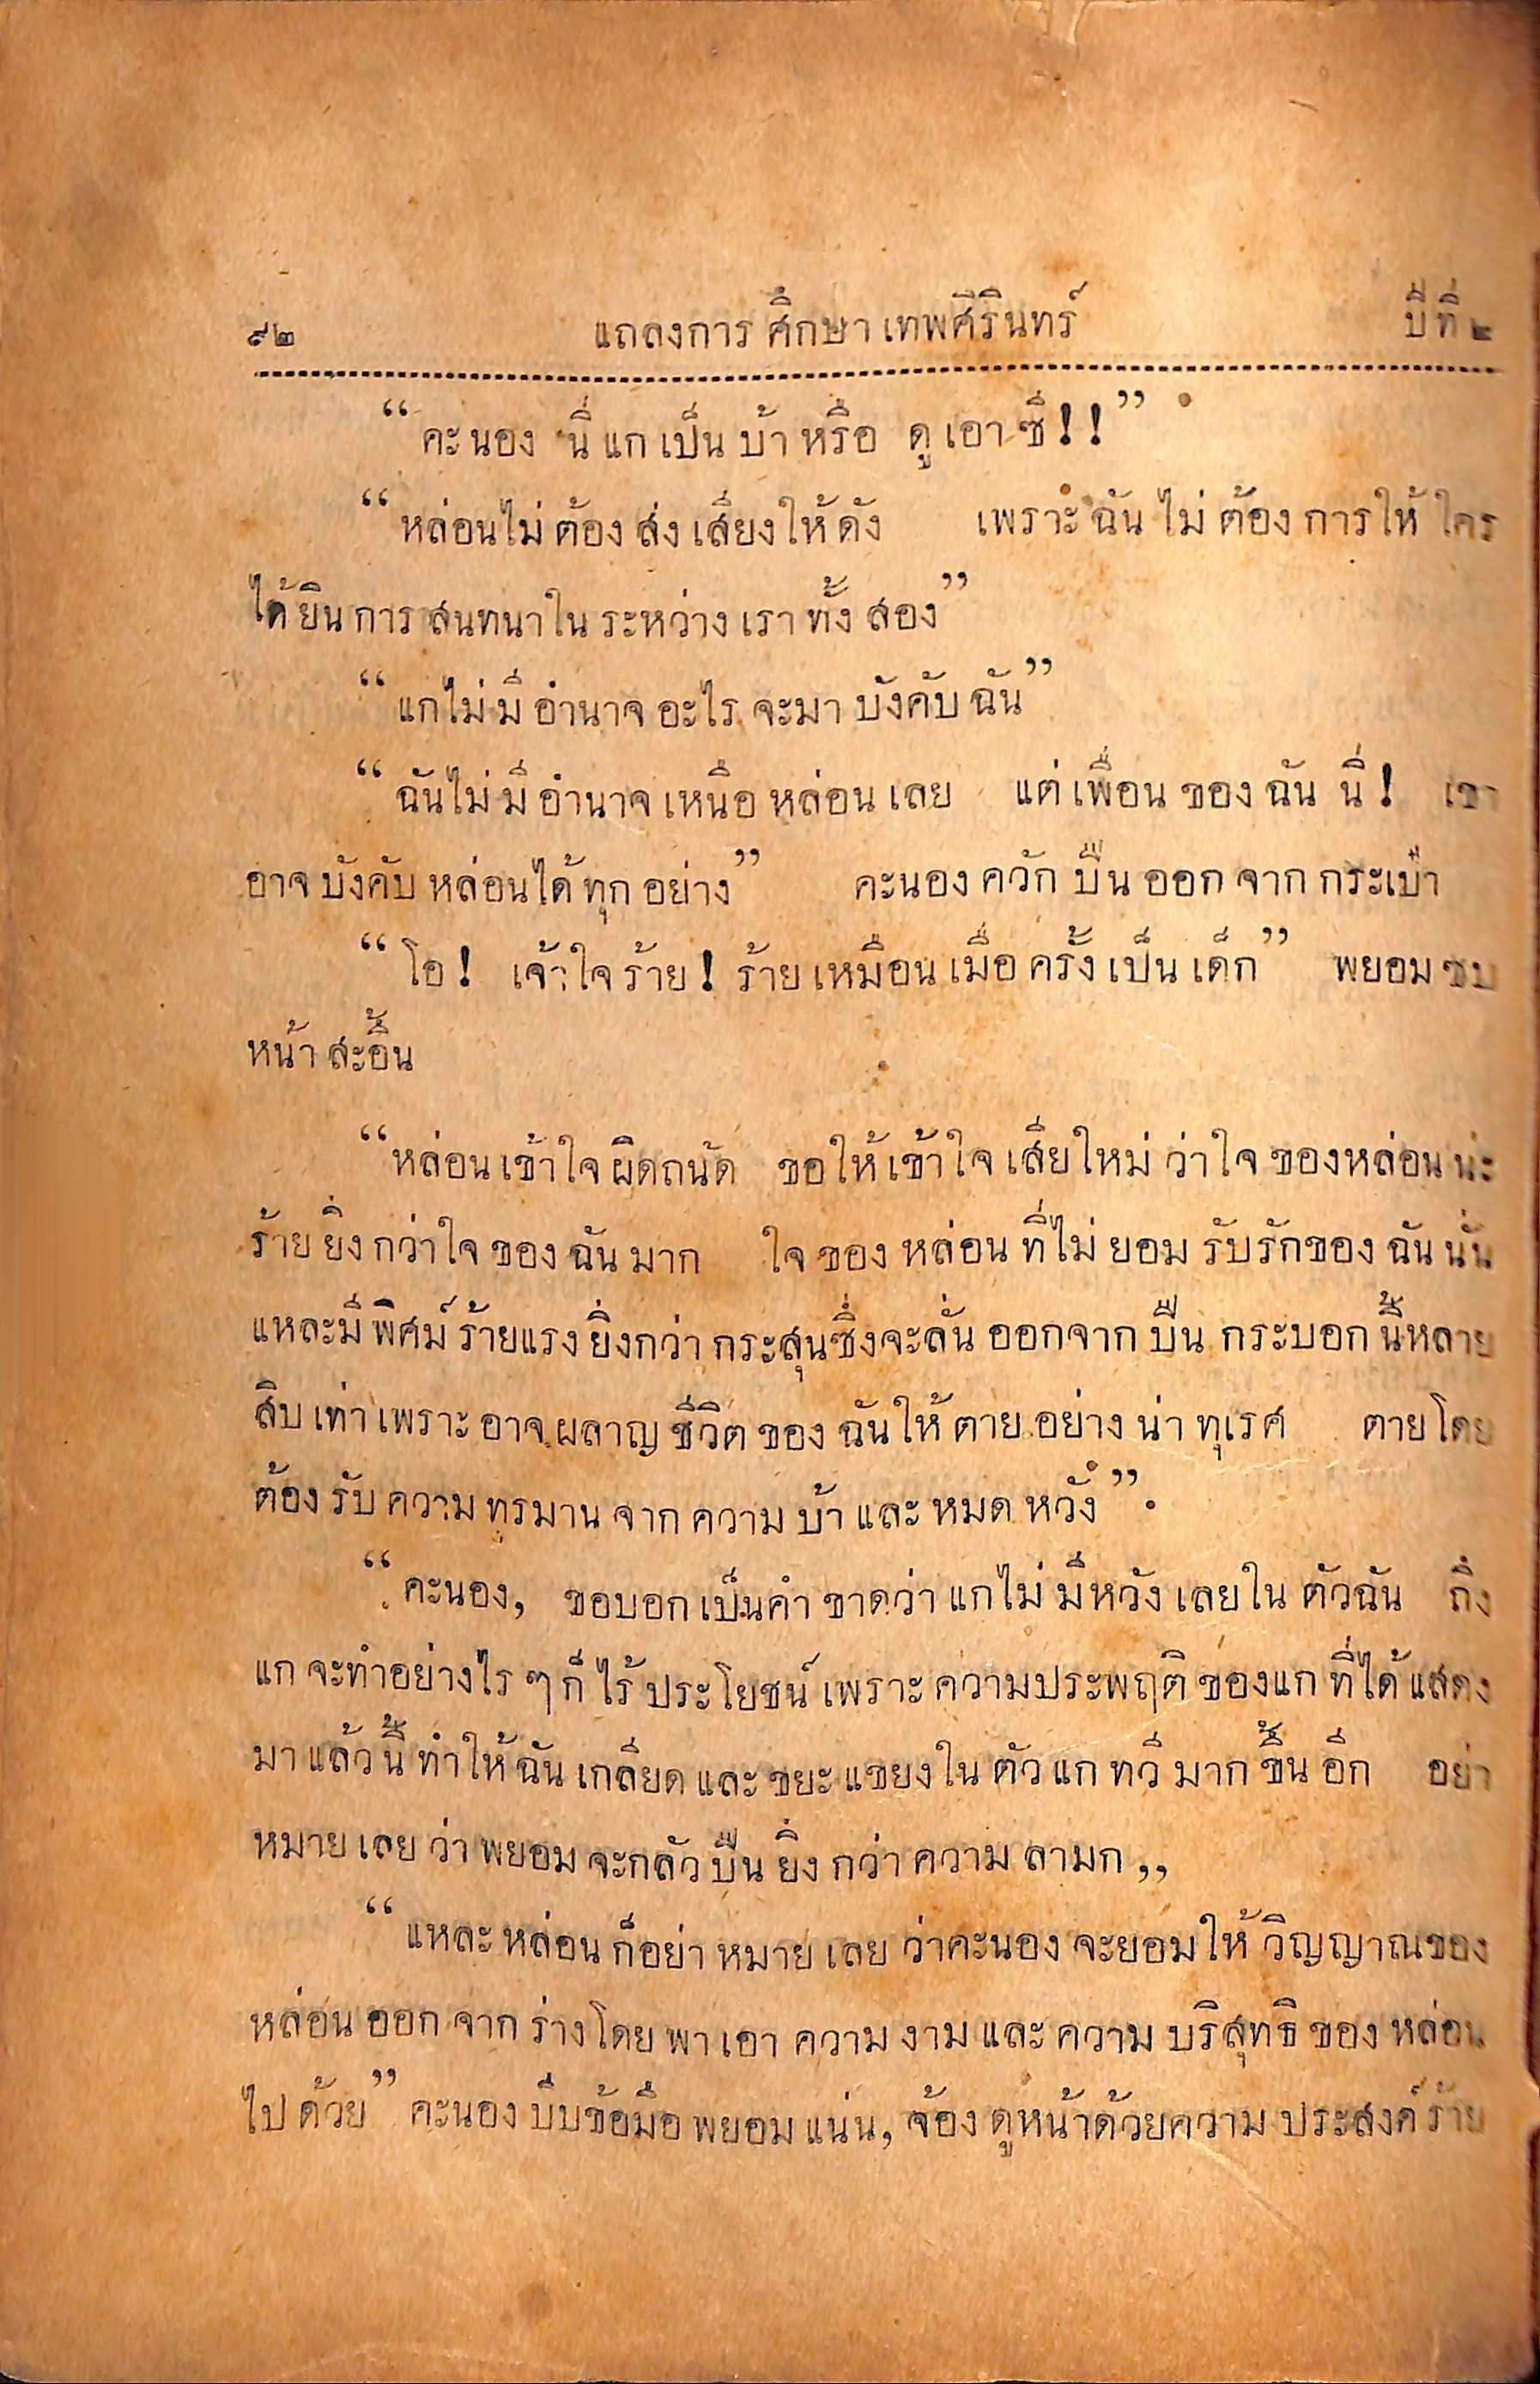 ๙๒ แถลงการ ศึกษา เทพศิรินทร์ ปีที่ ๒
“ คะนอง นี่ แก เป็น บ้า หรือ ดู เอา ซี ! ! ”
“ หล่อนไม่ ต้อง ส่ง เสียงให้ ดัง เพราะ ฉัน ไม่ ต้อง การให้ ใคร
ได้ ยิน การ สนทนาใน ระหว่าง เรา ทั้ง สอง ”
“ แกไม่ มี อำนาจ อะไร จะมา บังคับ ฉัน ”
“ ฉันไม่ มี อำนาจ เหนือ หล่อน เลย แต่ เพื่อน ของ ฉัน นี่ ! เขา
อาจ บังคับ หล่อนได้ ทุก อย่าง ” คะนอง ควัก ปืน ออก จาก กระเป๋า
“ โอ ! เจ้าใจ ร้าย ! ร้าย เหมือน เมื่อ ครั้ง เป็น เด็ก ” พยอม ซบ
หน้า สะอื้น
“ หล่อน เข้าใจ ผิดถนัด ขอให้ เข้าใจ เสียใหม่ ว่าใจ ของหล่อน น่ะ
ร้าย ยิ่ง กว่าใจ ของ ฉัน มาก ใจ ของ หล่อน ที่ไม่ ยอม รับรักของ ฉัน นั่น
แหละมี พิศม์ ร้ายแรง ยิ่งกว่า กระสุนซึ่งจะลั่น ออกจาก ปืน กระบอก นี้หลาย
สิบ เท่า เพราะ อาจ ผลาญ ชีวิต ของ ฉันให้ ตาย อย่าง น่า ทุเรศ ตายโดย
ต้อง รับ ความ ทรมาน จาก ความ บ้า และ หมด หวัง ” .
“ คะนอง, ขอบอก เป็นคำ ขาดว่า แกไม่ มีหวัง เลยใน ตัวฉัน ถึง
แก จะทำอย่างไร ๆ ก็ ไร้ ประโยชน์ เพราะ ความประพฤติ ของแก ที่ได้ แสดง
มา แล้ว นี้ ทำให้ ฉัน เกลียด และ ขยะ แขยงใน ตัว แก ทวี มาก ขึ้น อีก อย่า
หมาย เลย ว่า พยอม จะกลัว ปืน ยิ่ง กว่า ความ ลามก ,,
“ แหละ หล่อน ก็อย่า หมาย เลย ว่าคะนอง จะยอมให้ วิญญาณของ
หล่อน ออก จาก ร่างโดย พา เอา ความ งาม และ ความ บริสุทธิ ของ หล่อน
ไป ด้วย ” คะนอง บีบข้อมือ พยอม แน่น, จ้อง ดูหน้าด้วยความ ประสงค์ ร้าย